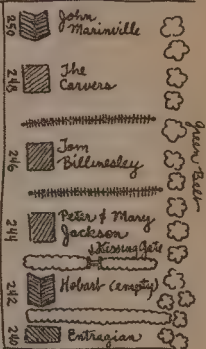 250
John
Marinville
248
The
Carvers
Green Belt
246
Tom
Billingsley
244
Peter & Mary
Jackson
Kissing Gate
242
Hobart (empty)
240
Entragian